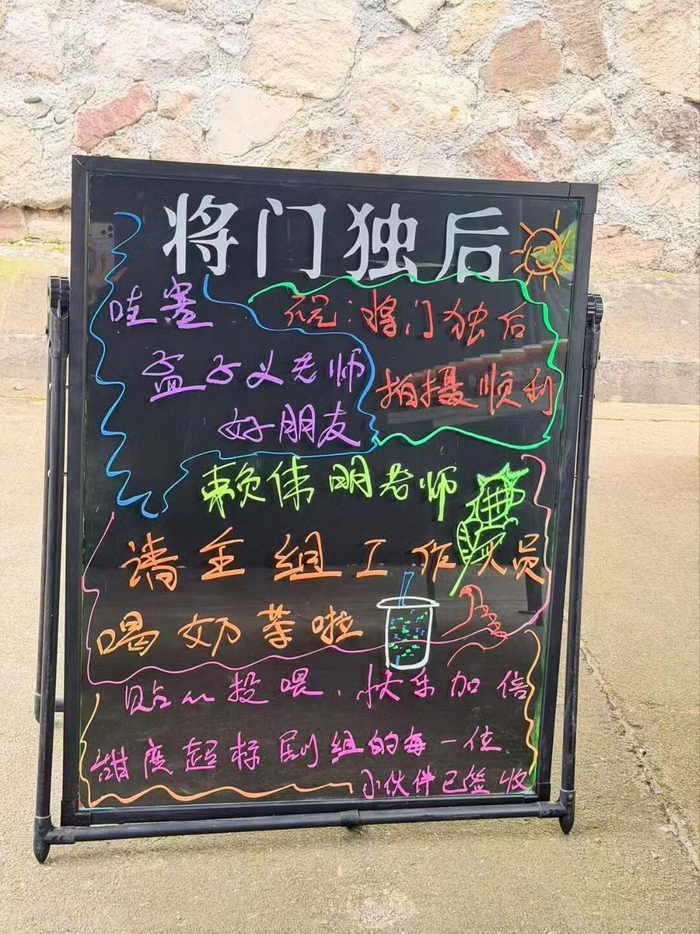 将门独后
哇塞
孟子义老师
好朋友
祝:将门独后
拍摄顺利
赖伟明老师
请全组工作人员
喝奶茶啦
贴心投喂、快乐加倍
甜度超标剧组的每一位
小伙伴已签收